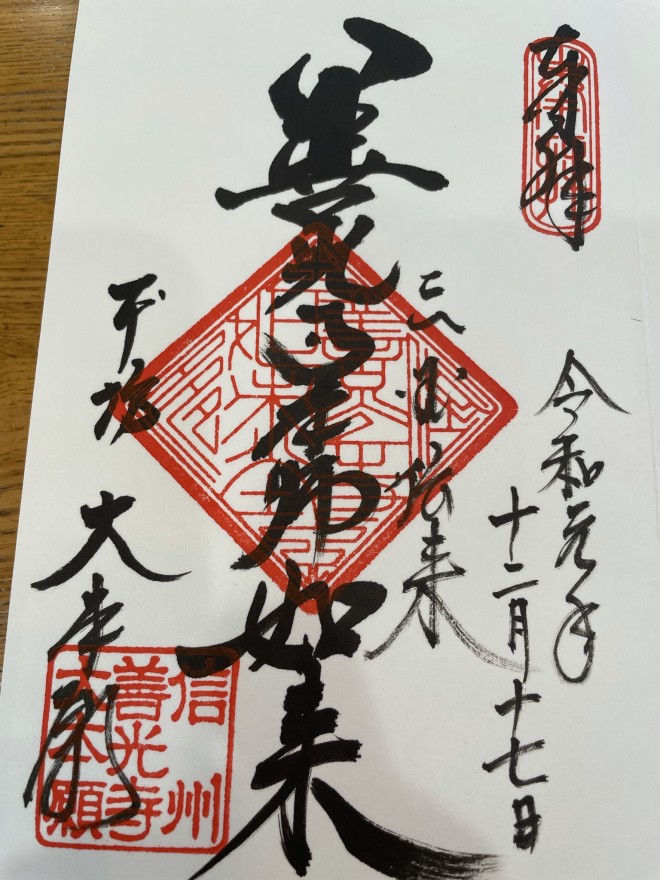 奉拝
令和元年
十二月十七日
三国伝来
善光寺本師如来
本坊
大本願
信州
善光寺
大本願